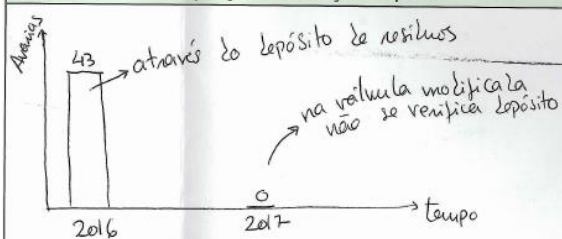 Avarias
43
através do depósito de resíduos
na válvula modificada
não se verifica depósito
0
2016
2017
tempo